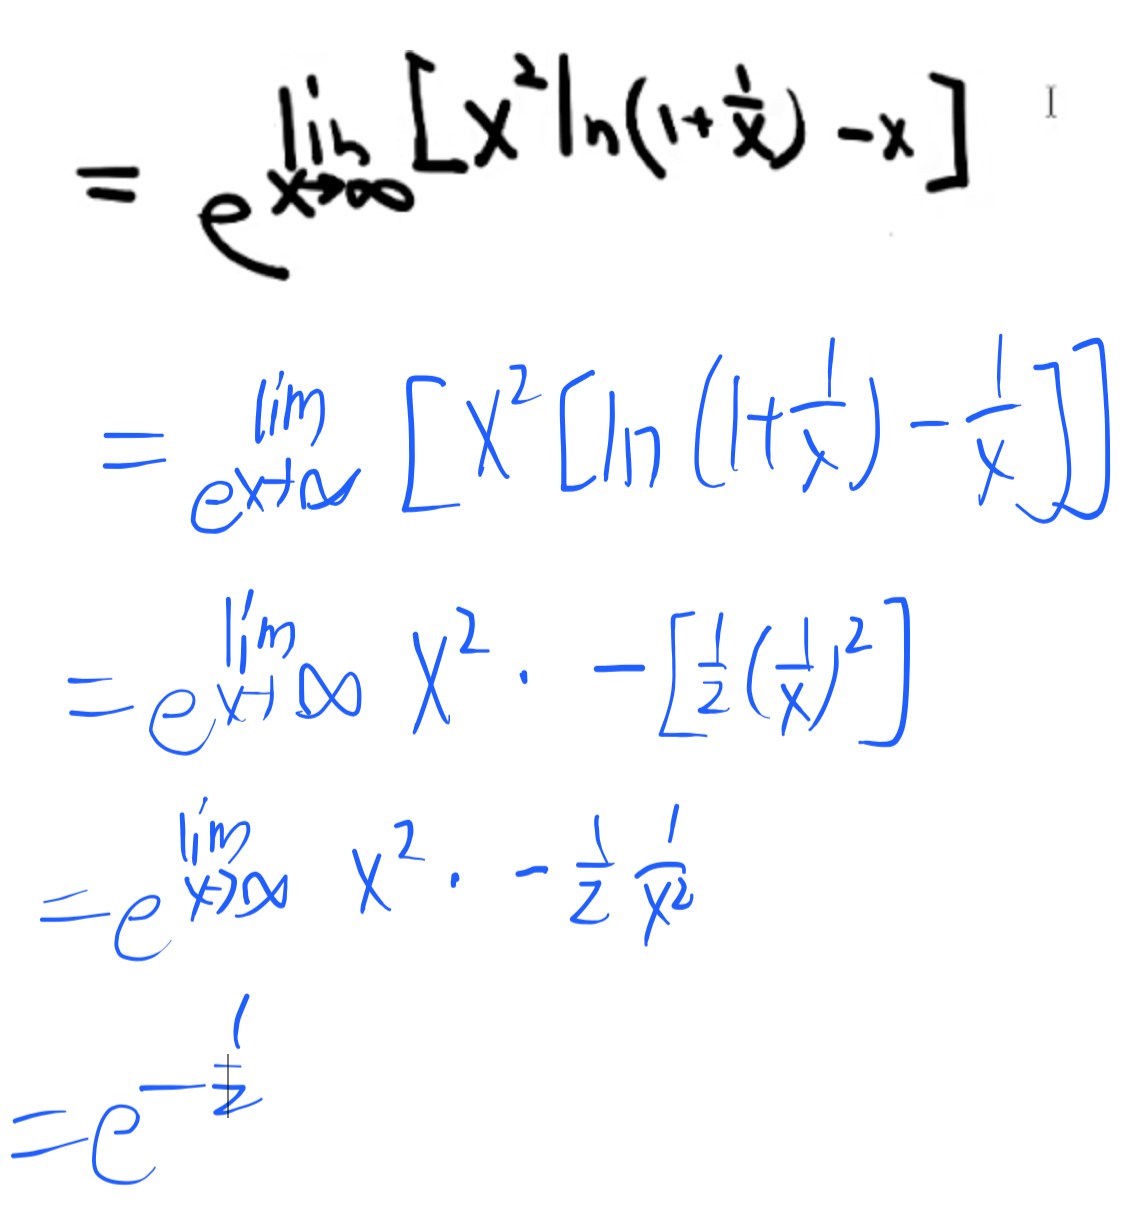 = e^{lim x→∞ [x² ln(1 + 1/x) - x]}
= e^{lim x→∞ [x² [ln(1 + 1/x) - 1/x]]}
= e^{lim x→∞ x² · -[1/2 (1/x)²]}
= e^{lim x→∞ x² · - 1/2 1/x²}
= e^{-1/2}